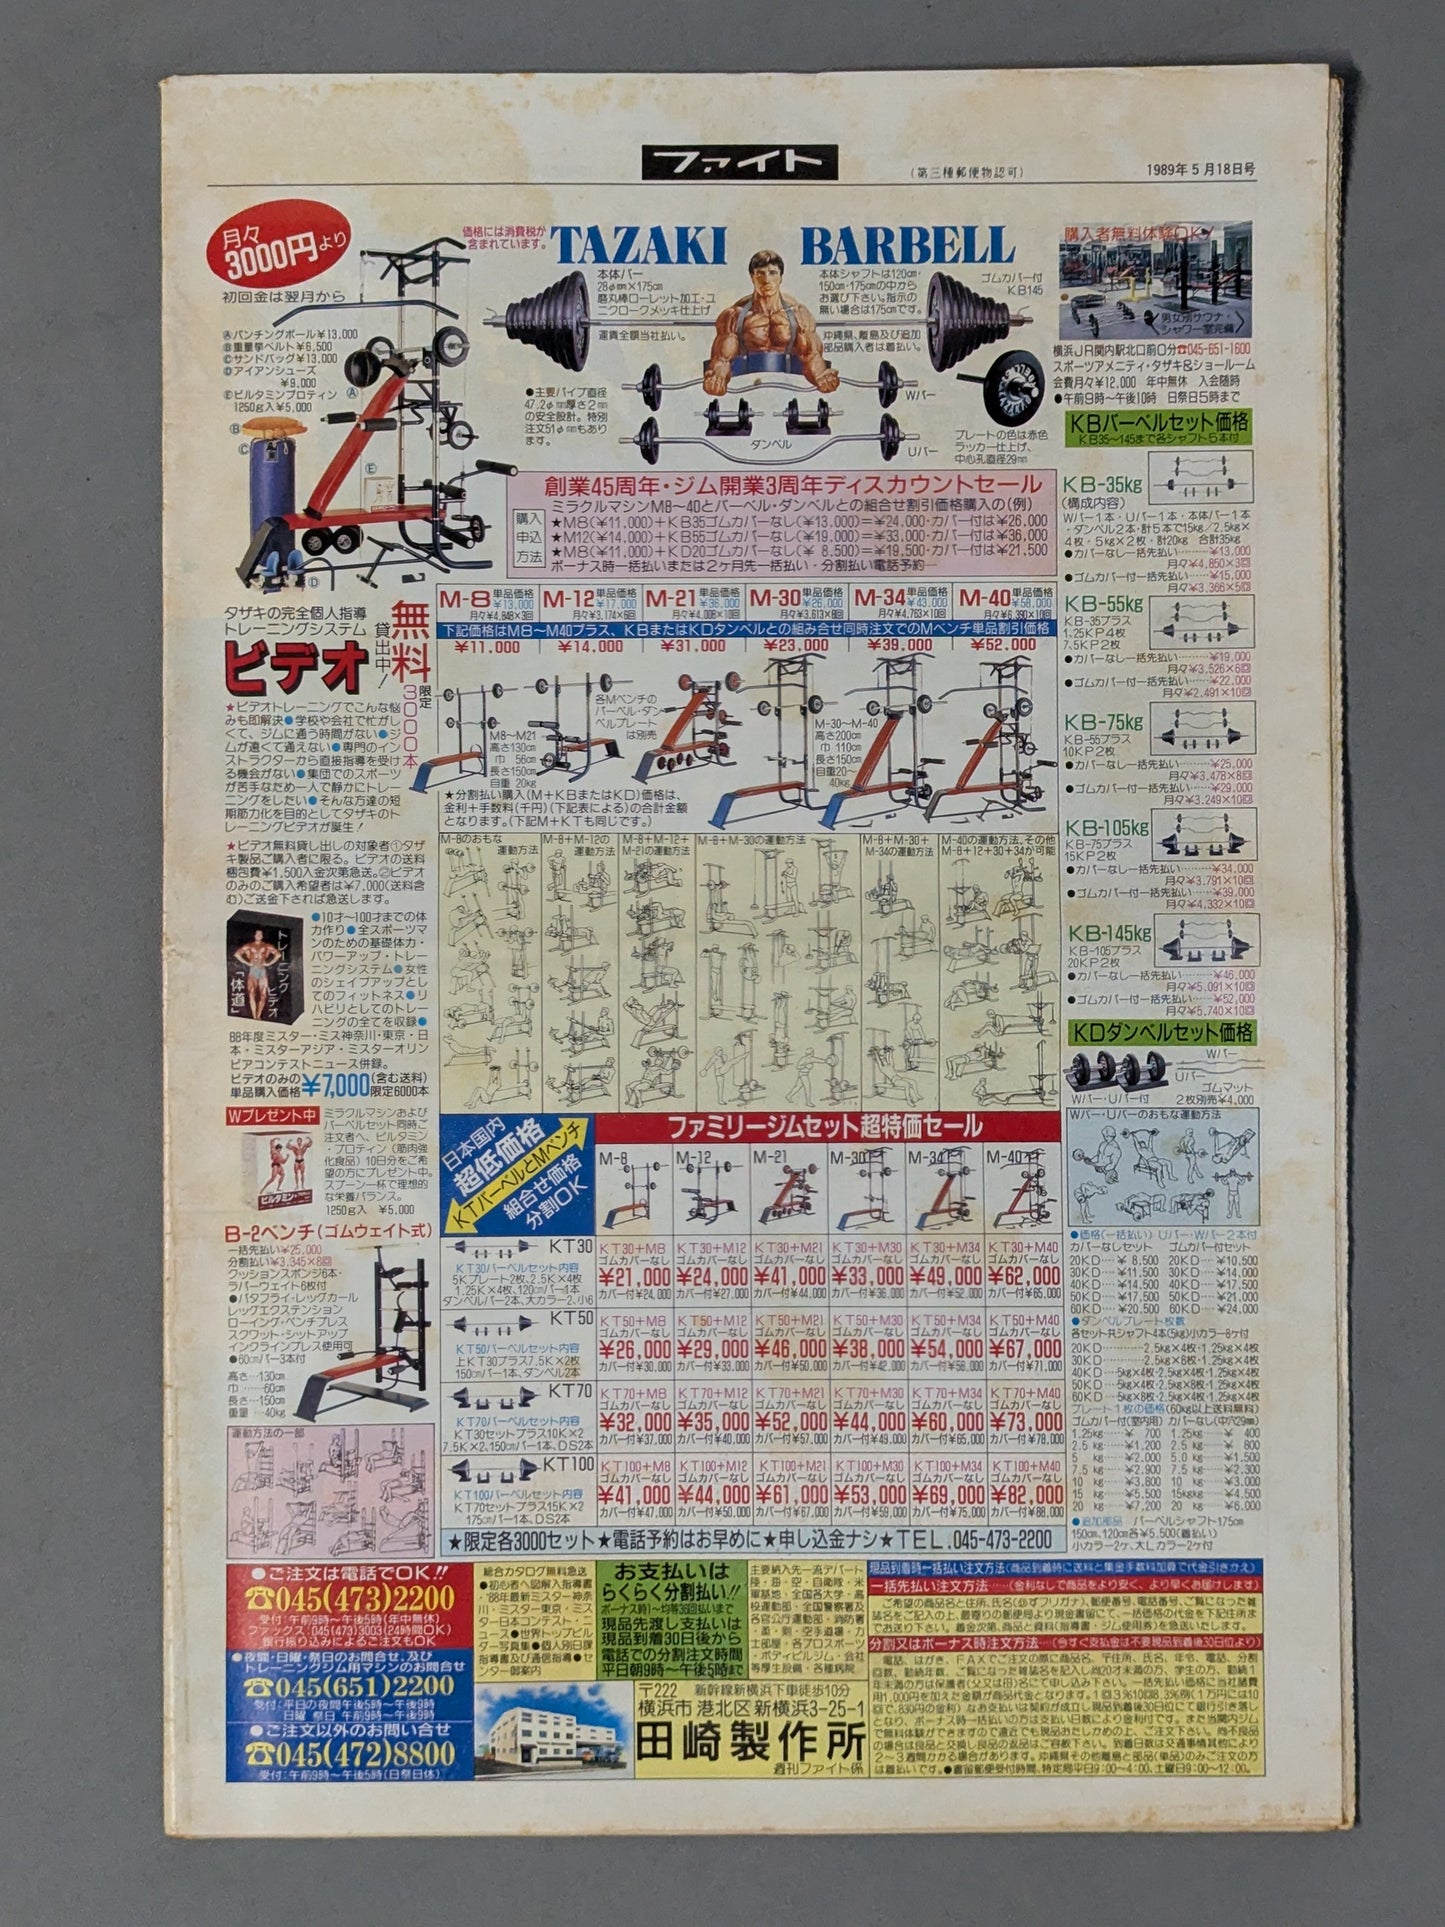 ファイト
(第三種郵便物認可)
1989年5月18日号
月々
3000円より
初回金は翌月から
価格には消費税が
含まれています。
TAZAKI BARBELL
本体バー
28φ㎜×175㎝
磨丸棒ローレット加工・ユ
ニクロークメッキ仕上げ
運賃全額当社払い。
本体シャフトは120㎝・
150㎝・175㎝の中から
お選び下さい。指示の
無い場合は175㎝です。
沖縄県、離島及び追加
部品購入者は着払い。
ゴムカバー付
KB145
Ⓐパンチングボール¥13,000
Ⓑ重量挙ベルト¥6,500
Ⓒサンドバッグ¥13,000
Ⓓアイアンシューズ
¥9,000
Ⓔビルタミンプロティン
1250g入¥5,000
●主要パイプ直径
47.2φ㎜厚さ2㎜
の安全設計。特別
注文51φ㎜もあり
ます。
Wバー
ダンベル
Uバー
プレートの色は赤色
ラッカー仕上げ、
中心孔直径29㎜
購入者無料体験OK!
男女別サウナ・
シャワー室完備
横浜JR関内駅北口前0分☎045-651-1600
スポーツアメニティ・タザキ&ショールーム
会費月々¥12,000 年中無休 入会随時
●午前9時〜午後10時 日祭日5時まで
創業45周年・ジム開業3周年ディスカウントセール
ミラクルマシンM8〜40とバーベル・ダンベルとの組合せ割引価格購入の(例)
購入
申込
方法
★M8(¥11,000)+KB35ゴムカバーなし(¥13,000)=¥24,000・カバー付は¥26,000
★M12(¥14,000)+KB55ゴムカバーなし(¥19,000)=¥33,000・カバー付は¥36,000
★M8(¥11,000)+KD20ゴムカバーなし(¥8,500)=¥19,500・カバー付は¥21,500
ボーナス時一括払いまたは2ヶ月先一括払い・分割払い電話予約
M-8 単品価格 ¥13,000 月々¥4,848×3回
M-12 単品価格 ¥17,000 月々¥3,174×6回
M-21 単品価格 ¥36,000 月々¥4,008×10回
M-30 単品価格 ¥26,000 月々¥3,613×8回
M-34 単品価格 ¥43,000 月々¥4,763×10回
M-40 単品価格 ¥58,000 月々¥6,390×10回
下記価格はM8〜M40プラス、KBまたはKDダンベルとの組み合せ同時注文でのMベンチ単品割引価格
¥11,000 ¥14,000 ¥31,000 ¥23,000 ¥39,000 ¥52,000
各Mベンチの
バーベル・ダン
ベルプレート
は別売
M8〜M21
高さ130㎝
巾 56㎝
長さ150㎝
自重 20kg
M-30〜M-40
高さ200㎝
巾 110㎝
長さ150㎝
自重20〜
40kg
★分割払い購入(M+KBまたはKD)価格は、
金利+手数料(千円)(下記表による)の合計金額
となります。(下記M+KTも同じです。)
タザキの完全個人指導
トレーニングシステム
ビデオ
無料
貸出中!
限定3000本
★ビデオトレーニングでこんな悩
みも即解決●学校や会社で忙がし
くて、ジムに通う時間がない●ジ
ムが遠くて通えない●専門のイン
ストラクターから直接指導を受け
る機会がない●集団でのスポーツ
が苦手なため一人で静かにトレー
ニングをしたい●そんな方達の短
期筋力化を目的としてタザキのト
レーニングビデオが誕生!
★ビデオ無料貸し出しの対象者①タザ
キ製品ご購入者に限る。ビデオの送料
梱包費¥1,500入金次第急送。②ビデオ
のみのご購入希望者は¥7,000(送料含
む)ご送金下されば急送します。
トレーニングビデオ
「体道」
●10才〜100才までの体
力作り●全スポーツマ
ンのための基礎体力・
パワーアップ・トレー
ニングシステム●女性
のシェイプアップとし
てのフィットネス●リ
ハビリとしてのトレー
ニングの全てを収録●
88年度ミスター・ミス神奈川・東京・日
本・ミスターアジア・ミスターオリン
ピアコンテストニュース併録。
ビデオのみの
単品購入価格¥7,000(含む送料)
限定6000本
M-8のおもな
運動方法
M-8+M-12の
運動方法
M-8+M-12+
M-21の運動方法
M-8+M-30の運動方法
M-8+M-30+
M-34の運動方法
M-40の運動方法、その他
M-8+12+30+34が可能
KBバーベルセット価格
KB35〜145まで各シャフト5本付
KB-35kg
(構成内容)
Wバー1本・Uバー1本・本体バー1本
・ダンベル2本・計5本で15kg/2.5kg×
4枚・5kg×2枚・計20kg 合計35kg
●カバーなし一括先払い……¥13,000
月々¥4,850×3回
●ゴムカバー付一括先払い……¥15,000
月々¥3,366×5回
KB-55kg
KB-35プラス
1.25KP4枚
7.5KP2枚
●カバーなし一括先払い……¥19,000
月々¥3,526×6回
●ゴムカバー付一括先払い……¥22,000
月々¥2,491×10回
KB-75kg
KB-55プラス
10KP2枚
●カバーなし一括先払い……¥25,000
月々¥3,478×8回
●ゴムカバー付一括先払い……¥29,000
月々¥3,249×10回
KB-105kg
KB-75プラス
15KP2枚
●カバーなし一括先払い……¥34,000
月々¥3,791×10回
●ゴムカバー付一括先払い……¥39,000
月々¥4,332×10回
KB-145kg
KB-105プラス
20KP2枚
●カバーなし一括先払い……¥46,000
月々¥5,091×10回
●ゴムカバー付一括先払い……¥52,000
月々¥5,740×10回
KDダンベルセット価格
Wバー
Uバー
ゴムマット
Wバー・Uバー付 2枚別売¥4,000
Wバー・Uバーのおもな運動方法
Wプレゼント中
ミラクルマシンおよび
バーベルセット同時ご
注文者へ、ビルタミン
・プロティン(筋肉強
化食品)10日分をご希
望の方にプレゼント中。
スプーン一杯で理想的
な栄養バランス。
1250g入 ¥5,000
B-2ベンチ(ゴムウェイト式)
一括先払い¥25,000
分割払い¥3,345×8回
クッションスポンジ6本・
ラバーウェイト6枚付
●バタフライ・レッグカール
レッグエクステンション
ローイング・ベンチプレス
スクワット・シットアップ
インクラインプレス使用可
●60㎝バー3本付
高さ…130㎝
巾 ……60㎝
長さ…150㎝
重量 …40kg
運動方法の一部
日本国内
超低価格
KTバーベルとMベンチ
組合せ価格
分割OK
ファミリージムセット超特価セール
M-8 M-12 M-21 M-30 M-34 M-40
KT30
KT30バーベルセット内容
5Kプレート2枚、2.5K×4枚
1.25K×4枚、120㎝バー1本
ダンベルバー2本、大カラー2、小6
KT30+M8 KT30+M12 KT30+M21 KT30+M30 KT30+M34 KT30+M40
ゴムカバーなし ゴムカバーなし ゴムカバーなし ゴムカバーなし ゴムカバーなし ゴムカバーなし
¥21,000 ¥24,000 ¥41,000 ¥33,000 ¥49,000 ¥62,000
カバー付¥24,000 カバー付¥27,000 カバー付¥44,000 カバー付¥36,000 カバー付¥52,000 カバー付¥65,000
KT50
KT50バーベルセット内容
上KT30プラス7.5K×2枚
150㎝バー1本、ダンベル2本
KT50+M8 KT50+M12 KT50+M21 KT50+M30 KT50+M34 KT50+M40
ゴムカバーなし ゴムカバーなし ゴムカバーなし ゴムカバーなし ゴムカバーなし ゴムカバーなし
¥26,000 ¥29,000 ¥46,000 ¥38,000 ¥54,000 ¥67,000
カバー付¥30,000 カバー付¥33,000 カバー付¥50,000 カバー付¥42,000 カバー付¥58,000 カバー付¥71,000
KT70
KT70バーベルセット内容
KT30セットプラス10K×2
7.5K×2、150㎝バー1本、DS2本
KT70+M8 KT70+M12 KT70+M21 KT70+M30 KT70+M34 KT70+M40
ゴムカバーなし ゴムカバーなし ゴムカバーなし ゴムカバーなし ゴムカバーなし ゴムカバーなし
¥32,000 ¥35,000 ¥52,000 ¥44,000 ¥60,000 ¥73,000
カバー付¥37,000 カバー付¥40,000 カバー付¥57,000 カバー付¥49,000 カバー付¥65,000 カバー付¥78,000
KT100
KT100バーベルセット内容
KT70セットプラス15K×2
175㎝バー1本、DS2本
KT100+M8 KT100+M12 KT100+M21 KT100+M30 KT100+M34 KT100+M40
ゴムカバーなし ゴムカバーなし ゴムカバーなし ゴムカバーなし ゴムカバーなし ゴムカバーなし
¥41,000 ¥44,000 ¥61,000 ¥53,000 ¥69,000 ¥82,000
カバー付¥47,000 カバー付¥50,000 カバー付¥67,000 カバー付¥59,000 カバー付¥75,000 カバー付¥88,000
★限定各3000セット★電話予約はお早めに★申し込金ナシ★TEL.045-473-2200
●価格(一括払い) Uバー・Wバー2本付
カバーなしセット ゴムカバー付セット
20KD…¥8,500 20KD…¥10,500
30KD…¥11,500 30KD…¥14,000
40KD…¥14,500 40KD…¥17,500
50KD…¥17,500 50KD…¥21,000
60KD…¥20,500 60KD…¥24,000
●ダンベルプレート枚数
各セット共シャフト4本(5kg)小カラー8ヶ付
20KD……2.5kg×4枚・1.25kg×4枚
30KD……2.5kg×8枚・1.25kg×4枚
40KD…5kg×4枚・2.5kg×4枚・1.25kg×4枚
50KD…5kg×4枚・2.5kg×8枚・1.25kg×4枚
60KD…5kg×8枚・2.5kg×4枚・1.25kg×4枚
プレート1枚の価格(60kg以上送料無料)
ゴムカバー付(室内用) カバーなし(中穴29㎜)
1.25kg…¥700 1.25kg…¥400
2.5 kg…¥1,200 2.5 kg…¥800
5 kg…¥2,000 5.0 kg…¥1,500
7.5 kg…¥2,900 7.5 kg…¥2,300
10 kg…¥3,800 10 kg…¥3,000
15 kg…¥5,500 15kg…¥4,500
20 kg…¥7,200 20 kg…¥6,000
●追加部品 バーベルシャフト175㎝
150㎝、120㎝各¥5,500(着払い)
小カラー2ケ、大Lカラー2ケ付
●ご注文は電話でOK!!
☎045(473)2200
受付:午前9時〜午後5時(年中無休)
ファックス:045(473)3003(24時間OK)
銀行振り込みによるご注文もOK
●夜間・日曜・祭日のお問合せ、及び
トレーニングジム用マシンのお問合せ
☎045(651)2200
受付:平日の夜間午後5時〜午後9時
日曜 祭日 午前9時〜午後9時
●ご注文以外のお問い合せ
☎045(472)8800
受付:午前9時〜午後5時(日祭日休)
総合カタログ無料急送
●初心者へ図解入指導書
・'88年最新ミスター神奈
川・ミスター東京・ミス
ター日本コンテスト・ニ
ュース●世界トップビル
ダー写真集●個人別日課
指導書及び通信指導●セ
ンター御案内
お支払いは
らくらく分割払い!!
ボーナス時1〜均等36回払いまで
現品先渡し支払いは
現品到着30日後から
電話での分割注文時間
平日朝9時〜午後5時まで
主要納入先一流デパート
陸・海・空・自衛隊・米
軍基地・全国各大学・高
校運動部・全国警察署及
各官公庁運動部・消防署
・柔・剣・空手道場・力
士部屋・各プロスポーツ
・ボディビルジム・会社
等厚生設備・各種病院
〒222 新幹線新横浜下車徒歩10分
横浜市 港北区 新横浜3-25-1
田崎製作所
週刊ファイト係
現品到着時一括払い注文方法(商品到着時に送料と集金手数料加算で代金引きかえ)
一括先払い注文方法……(金利なしで商品をより安く、より早くお届けします)
ご希望の商品名と住所、氏名(必ずフリガナ)、郵便番号、電話番号、ご覧になった雑
誌名をご記入の上、最寄りの郵便局より現金書留にて、一括価格の代金を下記住所ま
でお送り下さい。着金次第、商品と資料(指導書・ジム使用券)を急送いたします。
分割又はボーナス時注文方法…(今すぐ支払金は不要現品到着後30日位より)
電話、はがき、FAXでご注文の際に商品名、〒住所、氏名、年令、電話、分割
回数、勤続年数、ご覧になった雑誌名を記入し尚20才未満の方、学生の方、勤続1
年未満の方は保護者(父又は母)名にて申し込み下さい。一括先払い価格に当社諸費
用1,000円を加えた金額が商品代金となります。1回3%10回8.3%例(1万円に10
回で、830円の金利)なお支払いは契約が成立し現品到着後30日位にて銀行引き落し
となり、ボーナス時一括払いの方は支払い日数により金利付です。また当関内ジム
で無料体験ができますので遠近でも現品おたしかめの上、ご注文下さい。尚不良品
の場合は良品と交換し良品の返品はご容赦下さい。到着日数は交通事情其他により
2〜3週間かかる場合があります。沖縄県その他離島と部品(単品)のみご注文の方
は着払いです。●書留郵便受付時間、特定局平日9:00〜4:00、土曜日9:00〜12:00。